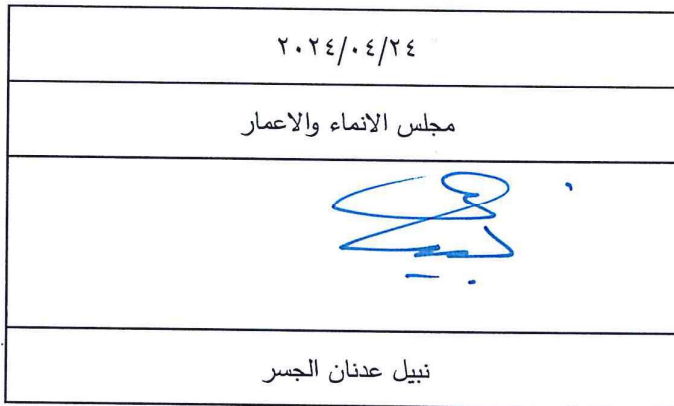 ٢٠٢٤/٠٤/٢٤
مجلس الانماء والاعمار
نبيل عدنان الجسر